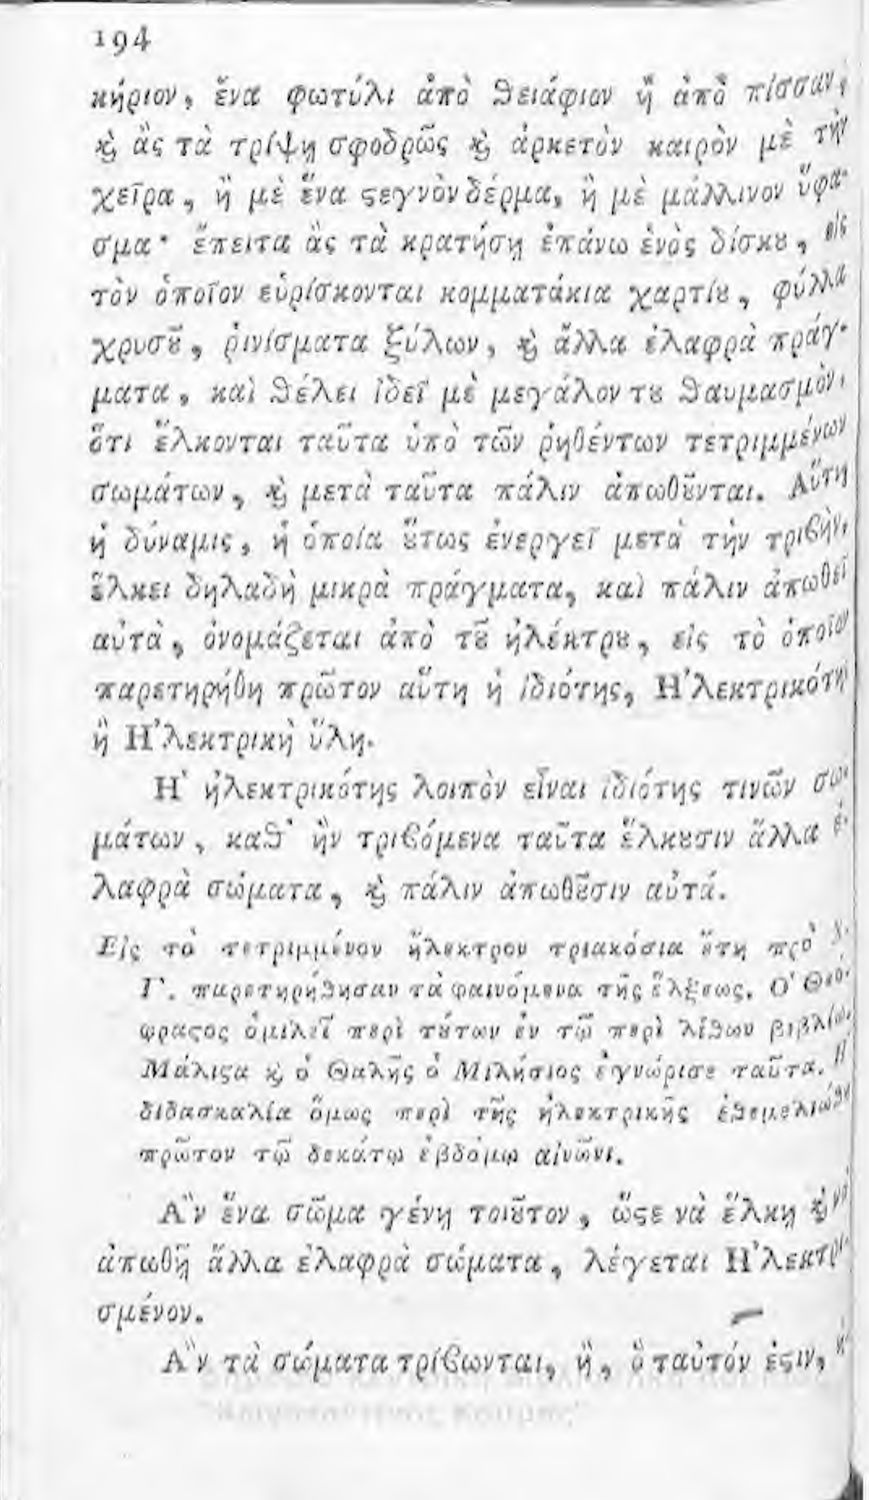 194
κήριον, ἕνα φωτύλι ἀπὸ θειάφιον ἢ ἀπὸ πίσσαν,
ϗ̀ ἂς τὰ τρίψῃ σφοδρῶς ϗ̀ ἀρκετὸν καιρὸν μὲ τὴν
χεῖρα, ἢ μὲ ἕνα ϛεγνὸν δέρμα, ἢ μὲ μάλλινον ὕφα-
σμα· ἔπειτα ἂς τὰ κρατήσῃ ἐπάνω ἑνὸς δίσκȣ, εἰς
τὸν ὁποῖον εὑρίσκονται κομματάκια χαρτίȣ, φύλλα
χρυσȣ͂, ῥινίσματα ξύλων, ϗ̀ ἄλλα ἐλαφρὰ πράγ-
ματα, καὶ θέλει ἰδεῖ μὲ μεγάλον τȣ θαυμασμὸν,
ὅτι ἕλκονται ταῦτα ὑπὸ τῶν ῥηθέντων τετριμμένων
σωμάτων, ϗ̀ μετὰ ταῦτα πάλιν ἀπωθȣ͂νται. Αὕτη
ἡ δύναμις, ἡ ὁποία ȣ̔́τως ἐνεργεῖ μετὰ τὴν τριβὴν,
ἕλκει δηλαδὴ μικρὰ πράγματα, καὶ πάλιν ἀπωθεῖ
αὐτὰ, ὀνομάζεται ἀπὸ τȣ͂ ἠλέκτρȣ, εἰς τὸ ὁποῖον
παρετηρήθη πρῶτον αὕτη ἡ ἰδιότης, Η᾿λεκτρικότη
ἢ Η᾿λεκτρικὴ ὕλη.
Η῾ ἠλεκτρικότης λοιπὸν εἶναι ἰδιότης τινῶν σω-
μάτων, καθ᾿ ἣν τριβόμενα ταῦτα ἕλκȣσιν ἄλλα ἐ-
λαφρὰ σώματα, ϗ̀ πάλιν ἀπωθȣ͂σιν αὐτά.
Εἰς τὸ τετριμμένον ἤλεκτρον τριακόσια ἔτη πρὸ Χ.
Γ. παρετηρήθησαν τὰ φαινόμενα τῆς ἕλξεως. Ο῾ Θεό-
φραϛος ὁμιλεῖ περὶ τȣ́των ἐν τῷ περὶ λίθων βιβλίῳ.
Μάλιϛα ϗ̀ ὁ Θαλῆς ὁ Μιλήσιος ἐγνώρισε ταῦτα. Η῾
διδασκαλία ὅμως περὶ τῆς ἠλεκτρικῆς ἐθεμελιώθη
πρῶτον τῷ δεκάτῳ ἑβδόμῳ αἰνῶνι.
Α῎ν ἕνα σῶμα γένῃ τοιȣ͂τον, ὥϛε νὰ ἕλκῃ ϗ̀ νὰ
ἀπωθῇ ἄλλα ἐλαφρὰ σώματα, λέγεται Η᾿λεκτρι-
σμένον.
Α῎ν τὰ σώματα τρίβωνται, ἢ, ὃ ταὐτόν ἐϛιν,